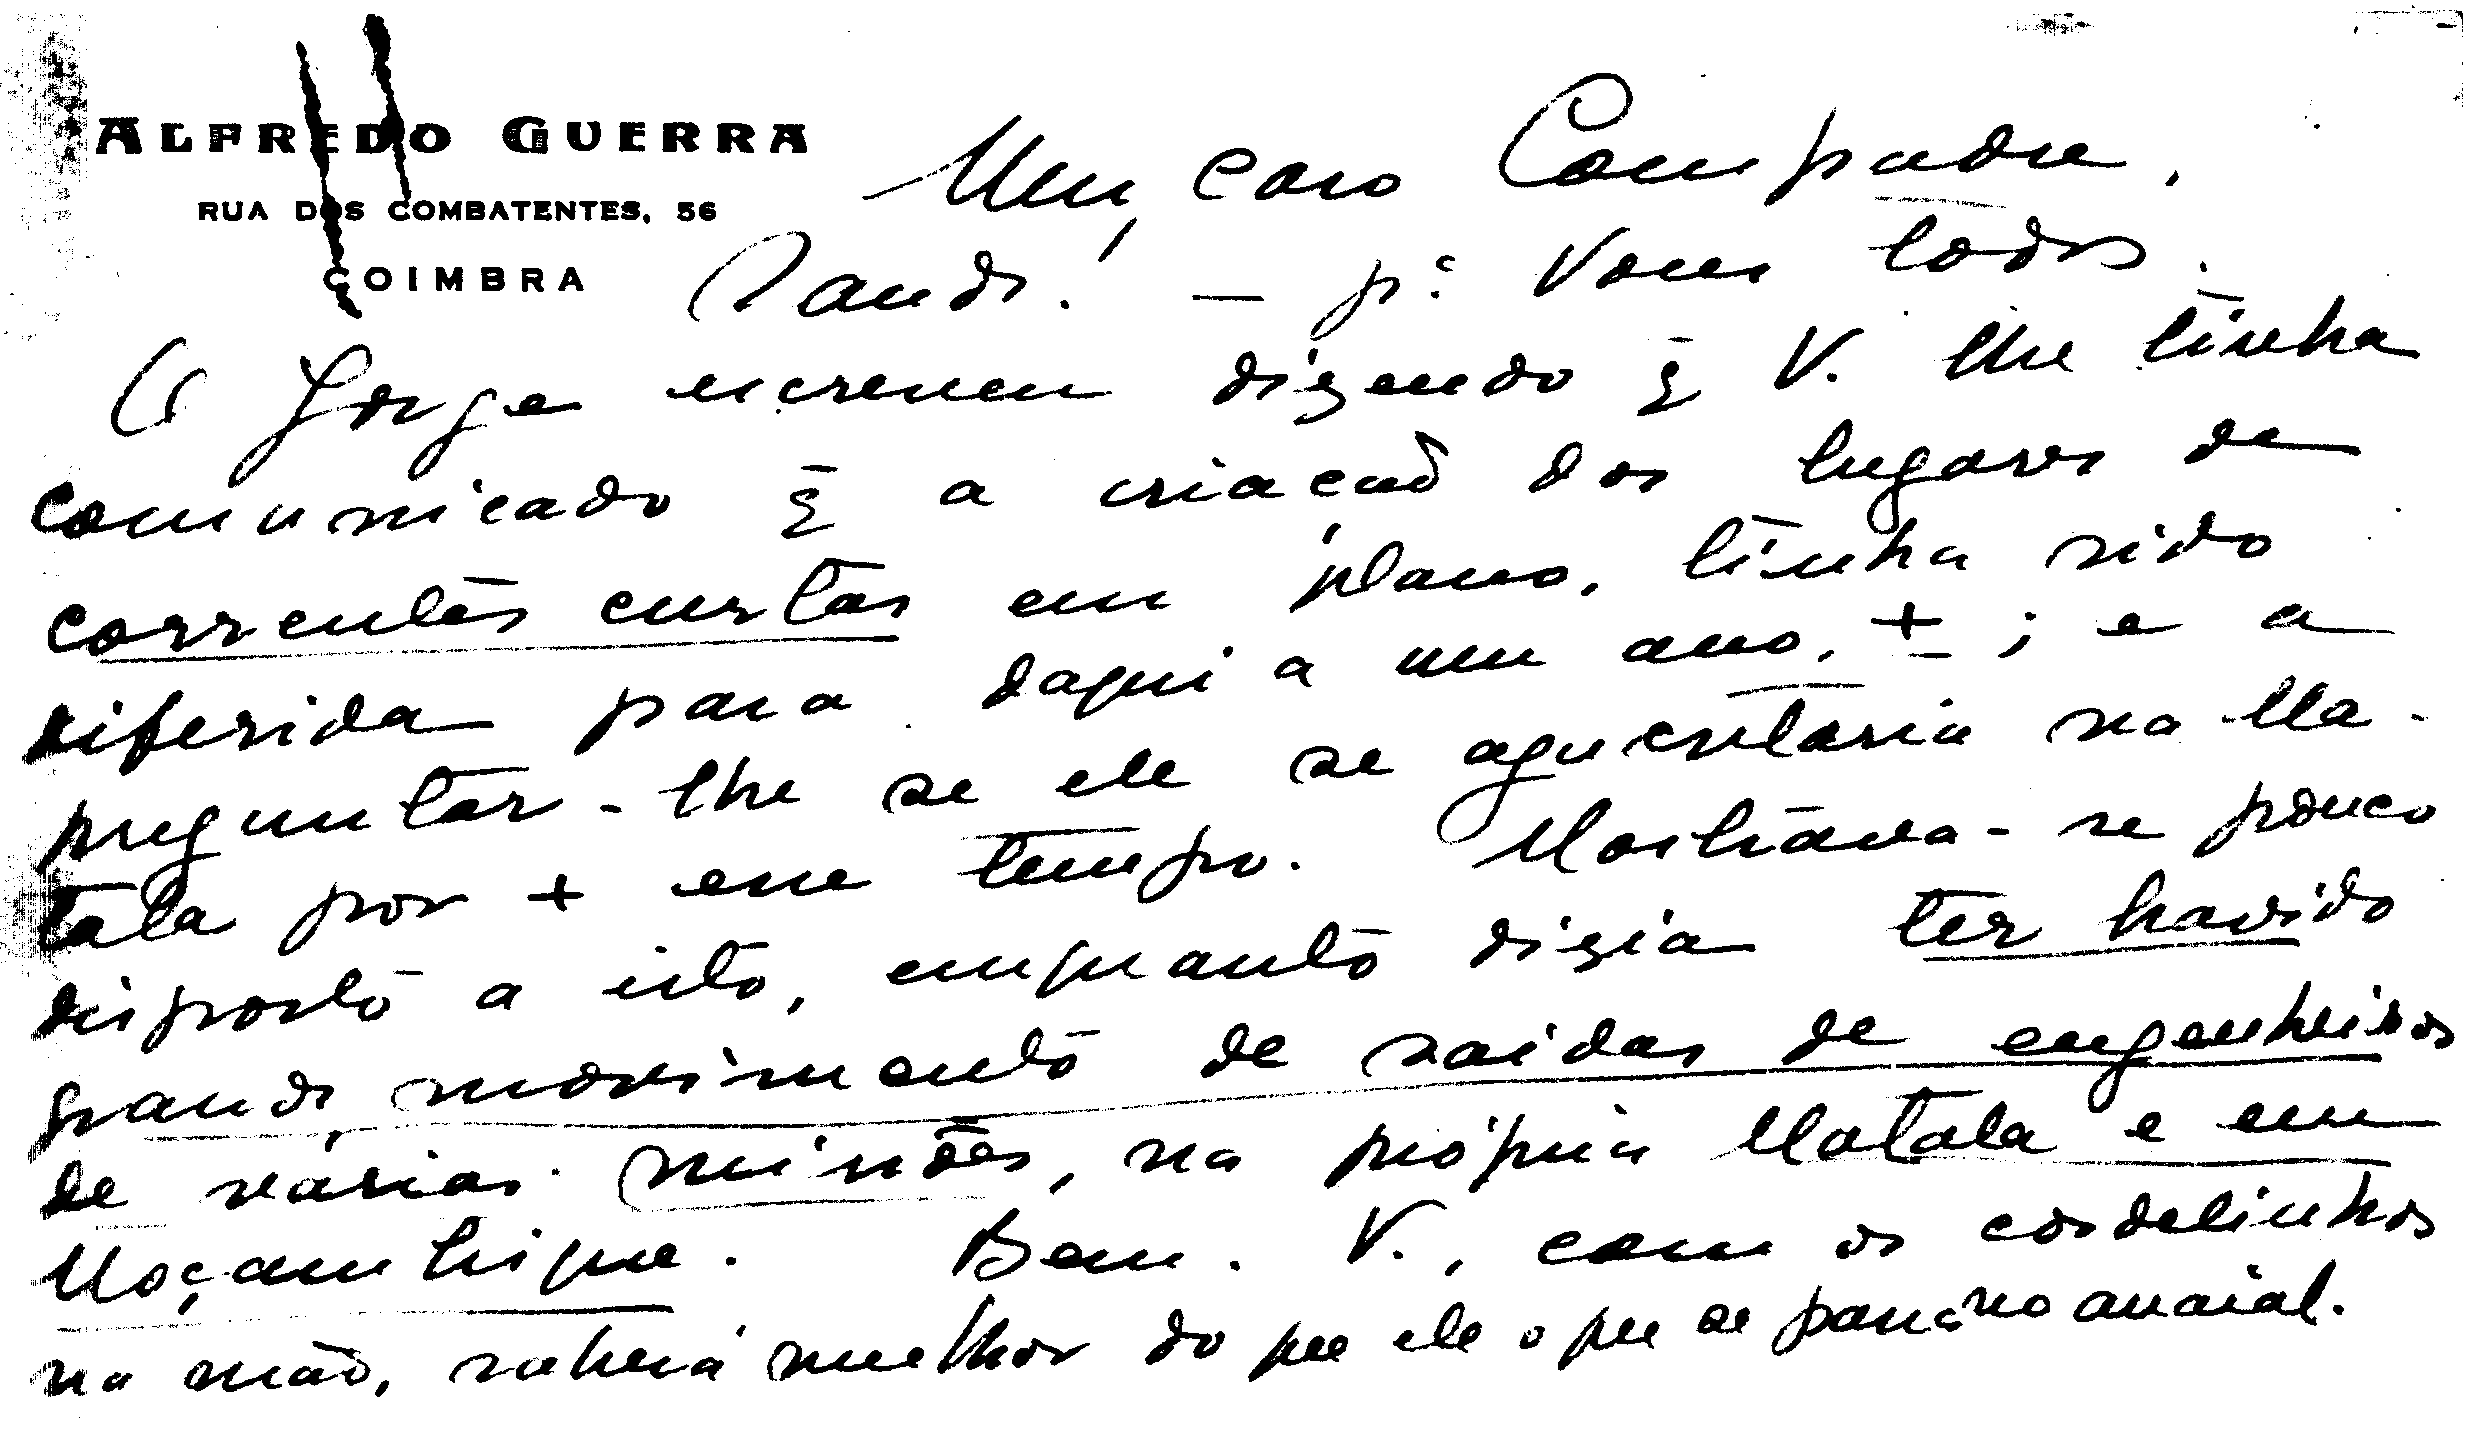 ALFREDO GUERRA
RUA DOS COMBATENTES, 56
COIMBRA
Meu caro Compadre,
Saude! — pª Voces todos.
O Jorge escreveu dizendo q̃ V. lhe tinha
comunicado q̃ a criação dos lugares de
correntes curtas em plano, tinha sido
diferida para daqui a um ano, ±; e a
preguntar-lhe se ele se aguentaria na Ma-
tala por + esse tempo. Mostrava-se pouco
disposto a isto, emquanto dizia ter havido
grande movimento de saidas de engenheiros
de várias missões, na própria Matala e em
Moçambique. Bem. V., com os cordelinhos
na mão, saberá melhor do que ele o que se passa no arraial.